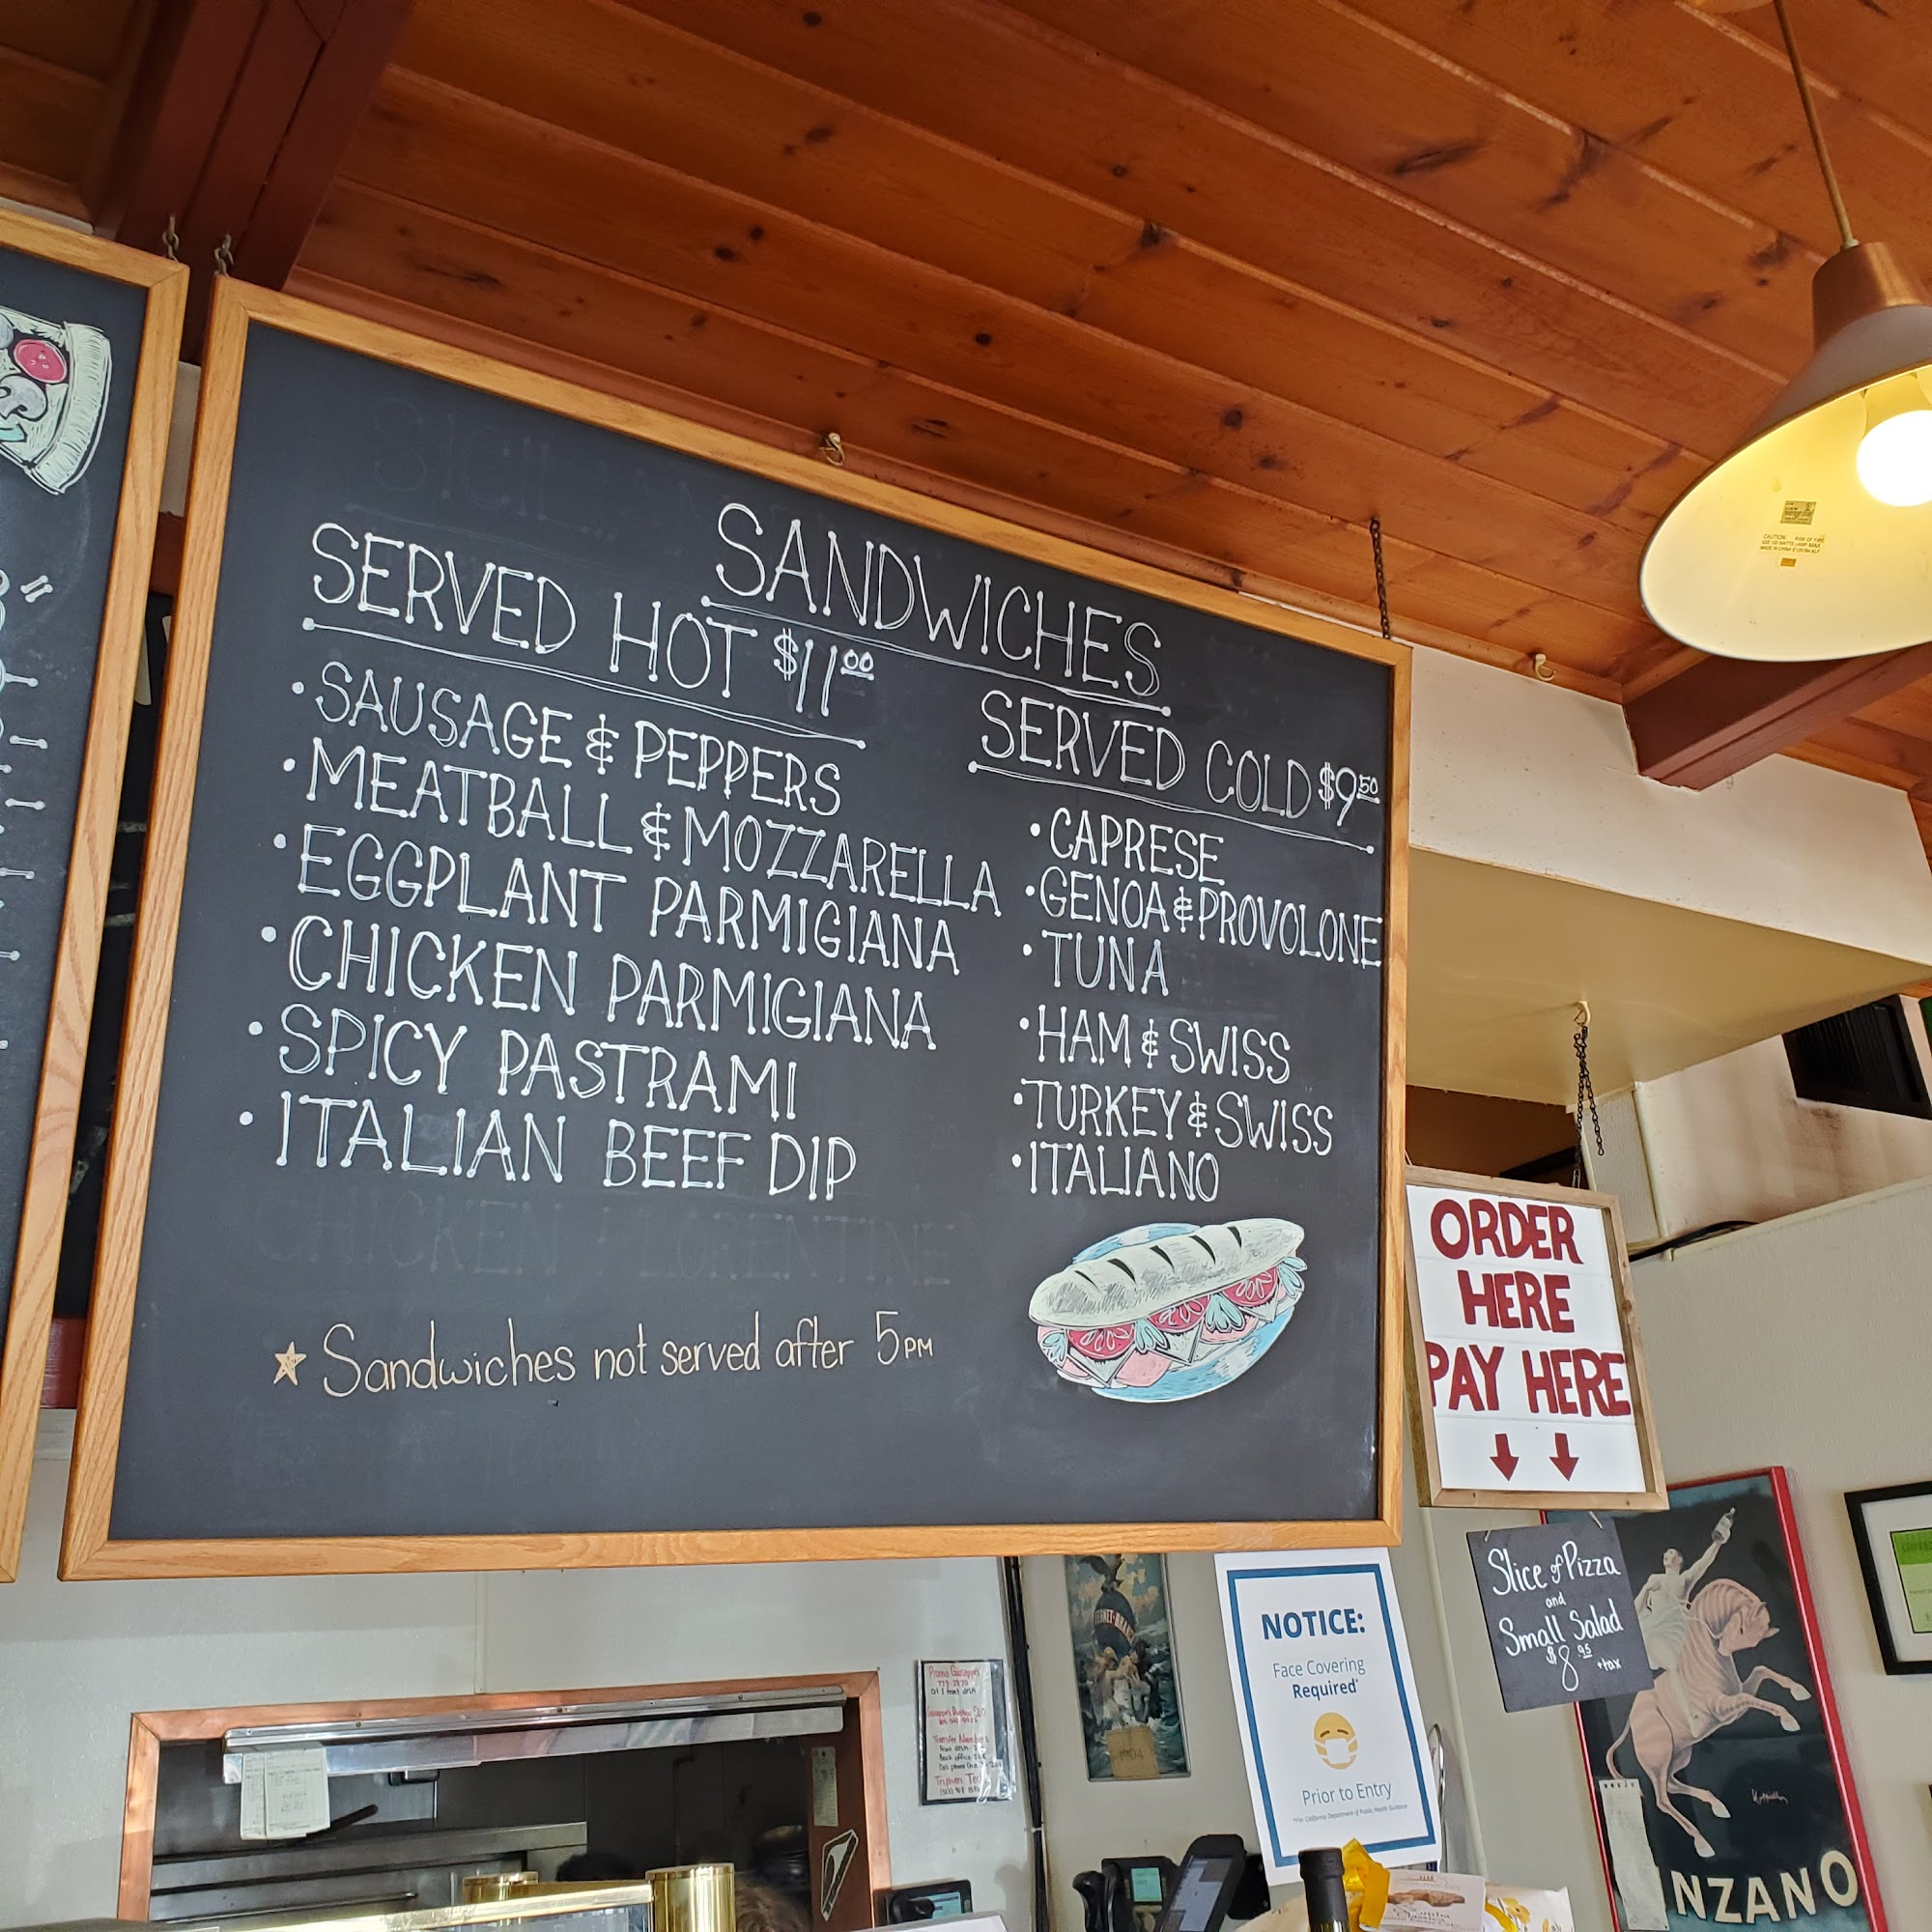 SANDWICHES
SERVED HOT $11.00
• SAUSAGE & PEPPERS
• MEATBALL & MOZZARELLA
• EGGPLANT PARMIGIANA
• CHICKEN PARMIGIANA
• SPICY PASTRAMI
• ITALIAN BEEF DIP
CHICKEN FLORENTINE
★ Sandwiches not served after 5PM
SERVED COLD $9.50
• CAPRESE
• GENOA & PROVOLONE
• TUNA
• HAM & SWISS
• TURKEY & SWISS
• ITALIANO
ORDER
HERE
PAY HERE
Slice of Pizza
and
Small Salad
$8.95
+tax
NOTICE:
Face Covering
Required*
Prior to Entry
*Per California Department of Public Health Guidance
1904
NZANO